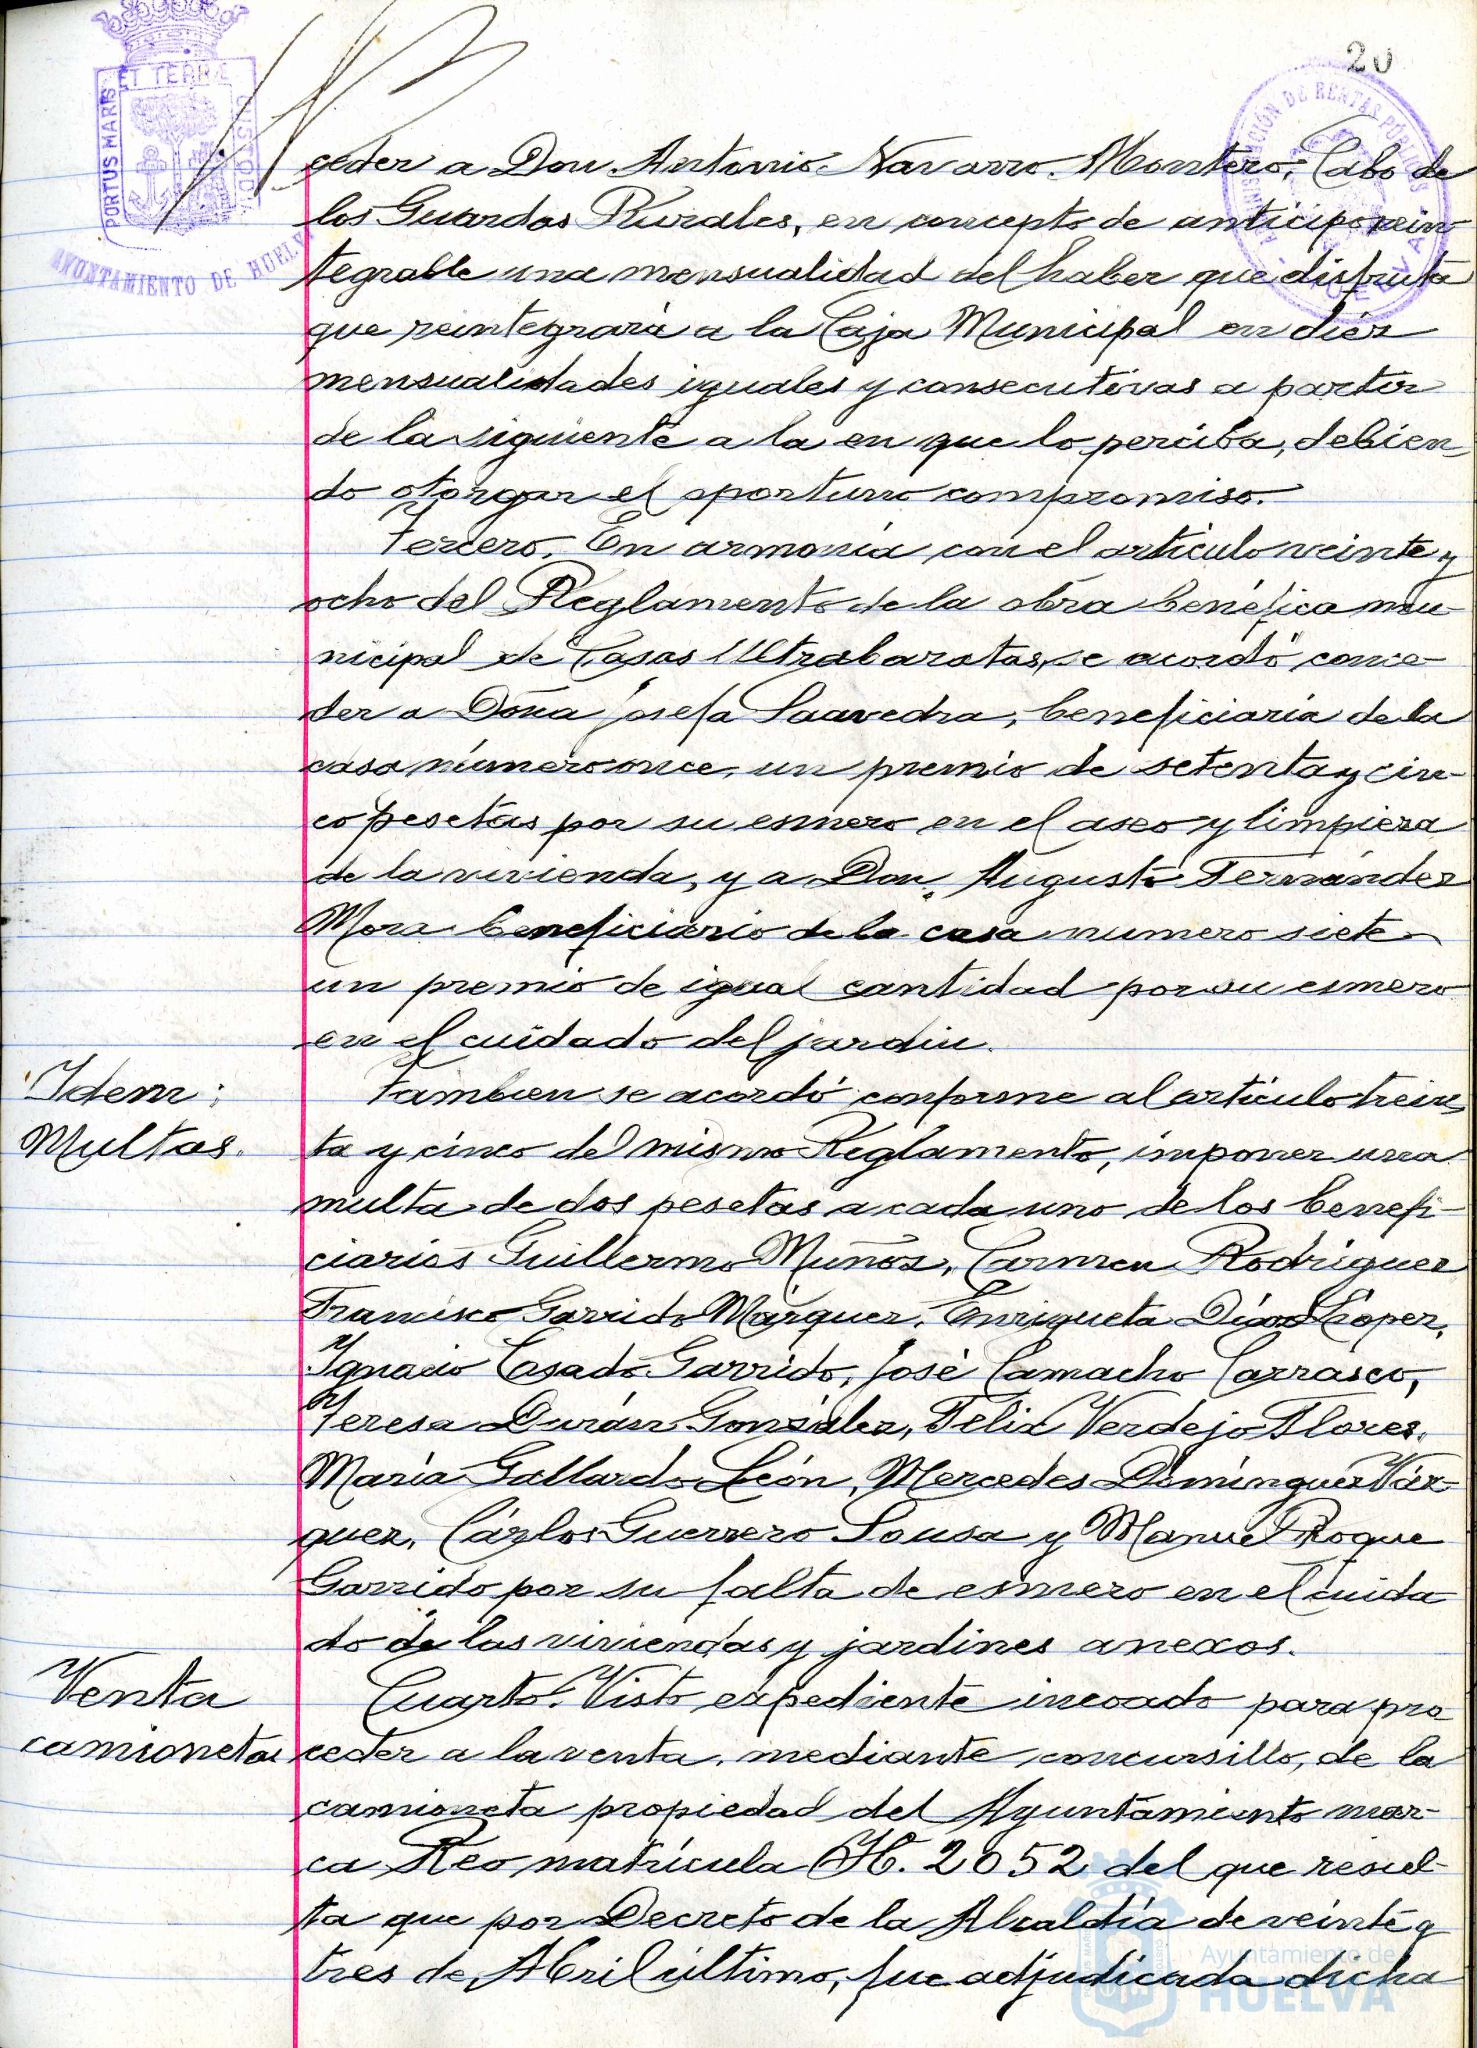 20
PORTUS MARIS ET TERRÆ CUSTODIA
AYUNTAMIENTO DE HUELVA
ADMINISTRACIÓN DE RENTAS PÚBLICAS
HUELVA
ceder a Don Antonio Navarro Montero, Cabo de
los Guardas Rurales, en concepto de anticipo rein
tegrable una mensualidad del haber que disfruta
que reintegrará a la Caja Municipal en diez
mensualidades iguales y consecutivas a partir
de la siguiente a la en que lo perciba, debien-
do otorgar el oportuno compromiso.
Tercero. En armonía con el artículo veinte y
ocho del Reglamento de la obra benéfica mu-
nicipal de Casas Ultrabaratas, se acordó conce-
der a Doña Josefa Saavedra, beneficiaria de la
casa número once, un premio de setenta y cin-
co pesetas por su esmero en el aseo y limpieza
de la vivienda, y a Don Augusto Fernández
Mora beneficiario de la casa numero siete
un premio de igual cantidad por su esmero
en el cuidado del jardin.
Idem:
Multas.
Tambien se acordó conforme al artículo trein
ta y cinco del mismo Reglamento, imponer una
multa de dos pesetas a cada uno de los benefi-
ciarios Guillermo Muñoz, Carmen Rodríguez
Francisco Garrido Márquez, Enriqueta Díaz López,
Ignacio Casado Garrido, José Camacho Carrasco,
Teresa Durán González, Felix Verdejo Flores,
María Gallardo León, Mercedes Domínguez Váz-
quez, Cárlos Guerrero Sousa y Manuel Roque
Garrido por su falta de esmero en el cuida
do de las viviendas y jardines anexos.
Venta
camionetas
Cuarto. Visto expediente incoado para pro
ceder a la venta, mediante concursillo, de la
camioneta propiedad del Ayuntamiento mar-
ca Reo matrícula H. 2052 del que resul-
ta que por Decreto de la Alcaldía de veinte y
tres de Abril último, fue adjudicada dicha
Ayuntamiento de
HUELVA